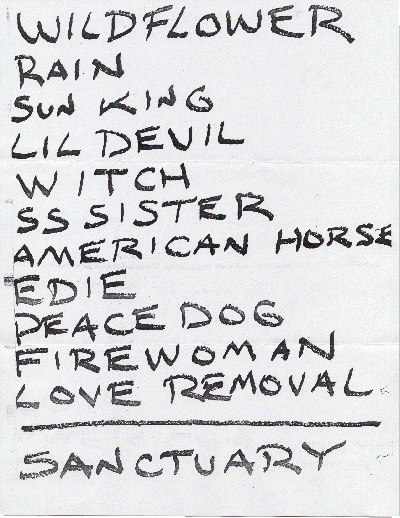 WILDFLOWER
RAIN
SUN KING
LIL DEVIL
WITCH
SS SISTER
AMERICAN HORSE
EDIE
PEACE DOG
FIREWOMAN
LOVE REMOVAL
SANCTUARY